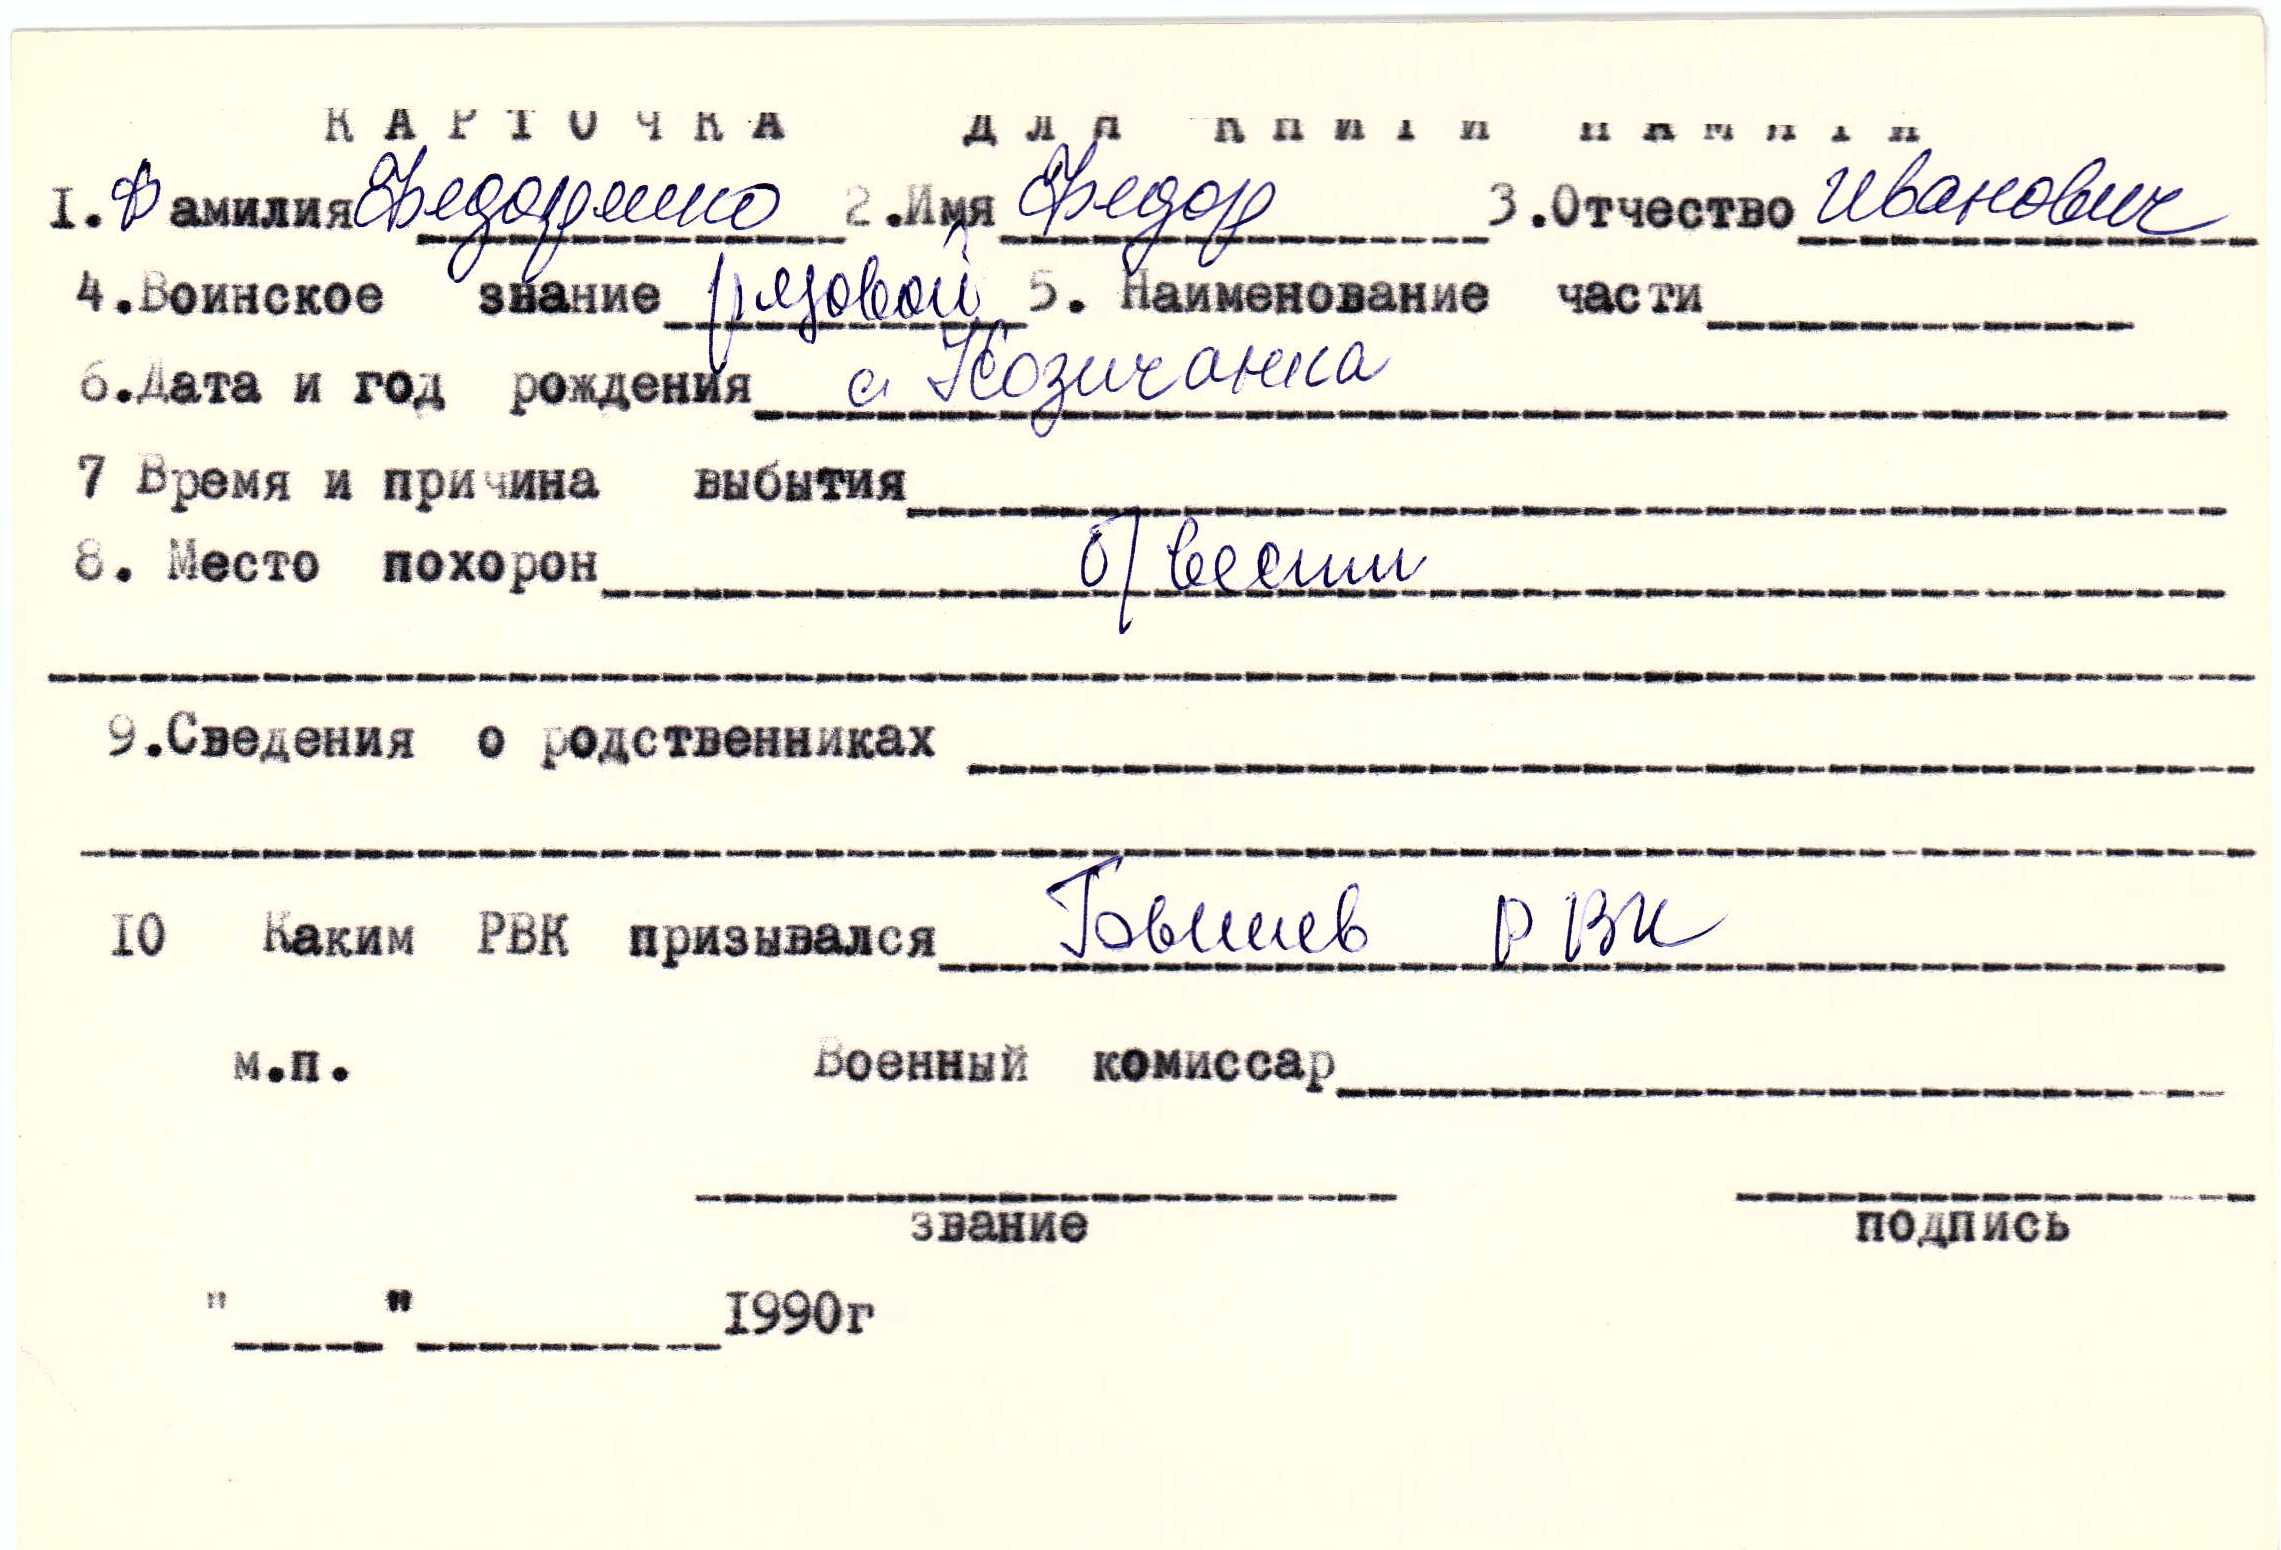 КАРТОЧКА ДЛЯ КНИГИ ПАМЯТИ
I. Фамилия Федоренко 2. Имя Федор 3. Отчество Иванович
4. Воинское звание рядовой 5. Наименование части
6. Дата и год рождения с. Козичанка
7 Время и причина выбытия
8. Место похорон б/вести
9. Сведения о родственниках
I0 Каким РВК призывался РВК
м.п. Военный комиссар
звание подпись
" " I990г